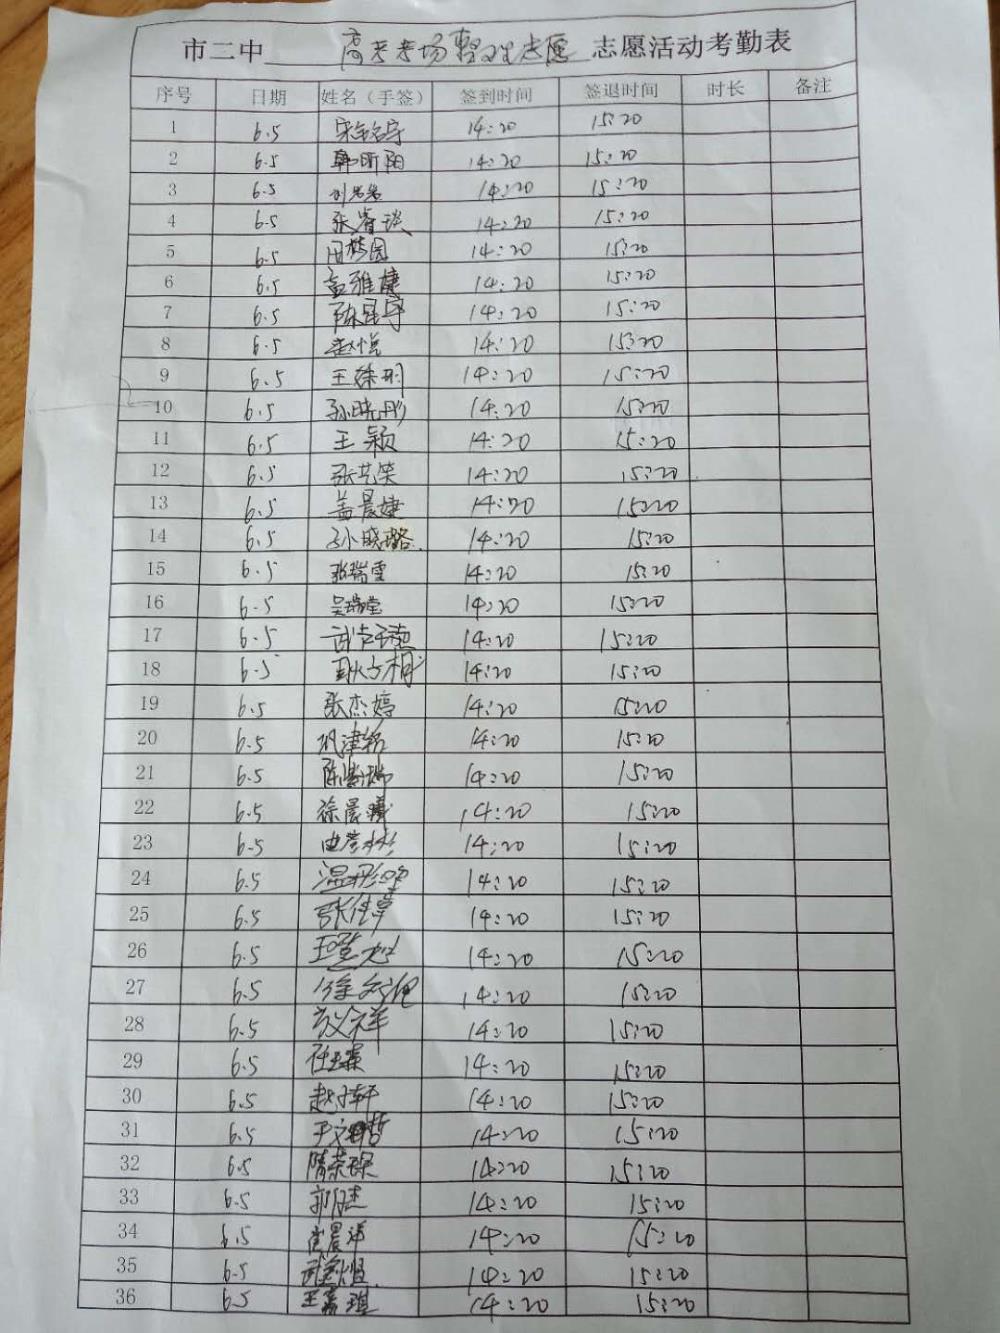 市二中 高考考场整理志愿 志愿活动考勤表
序号 日期 姓名（手签） 签到时间 签退时间 时长 备注
1 6.5 宋铭宇 14:20 15:20
2 6.5 韩昕阳 14:20 15:20
3 6.5 14:20 15:20
4 6.5 张睿琰 14:20 15:20
5 6.5 田梦园 14:20 15:20
6 6.5 孟雅婕 14:20 15:20
7 6.5 陈昆宇 14:20 15:20
8 6.5 赵悦 14:20 15:20
9 6.5 14:20 15:20
10 6.5 孙晓彤 14:20 15:20
11 6.5 王颖 14:20 15:20
12 6.5 张艺笑 14:20 15:20
13 6.5 盖晨婕 14:20 15:20
14 6.5 孙晓璐 14:20 15:20
15 6.5 张瑞雪 14:20 15:20
16 6.5 吴瑞莹 14:20 15:20
17 6.5 14:20 15:20
18 6.5 14:20 15:20
19 6.5 张杰婷 14:20 15:20
20 6.5 巩津铭 14:20 15:20
21 6.5 陈紫瑞 14:20 15:20
22 6.5 徐晨曦 14:20 15:20
23 6.5 14:20 15:20
24 6.5 14:20 15:20
25 6.5 14:20 15:20
26 6.5 14:20 15:20
27 6.5 14:20 15:20
28 6.5 14:20 15:20
29 6.5 14:20 15:20
30 6.5 赵子轩 14:20 15:20
31 6.5 14:20 15:20
32 6.5 隋荣琛 14:20 15:20
33 6.5 14:20 15:20
34 6.5 14:20 15:20
35 6.5 14:20 15:20
36 6.5 王嘉琪 14:20 15:20